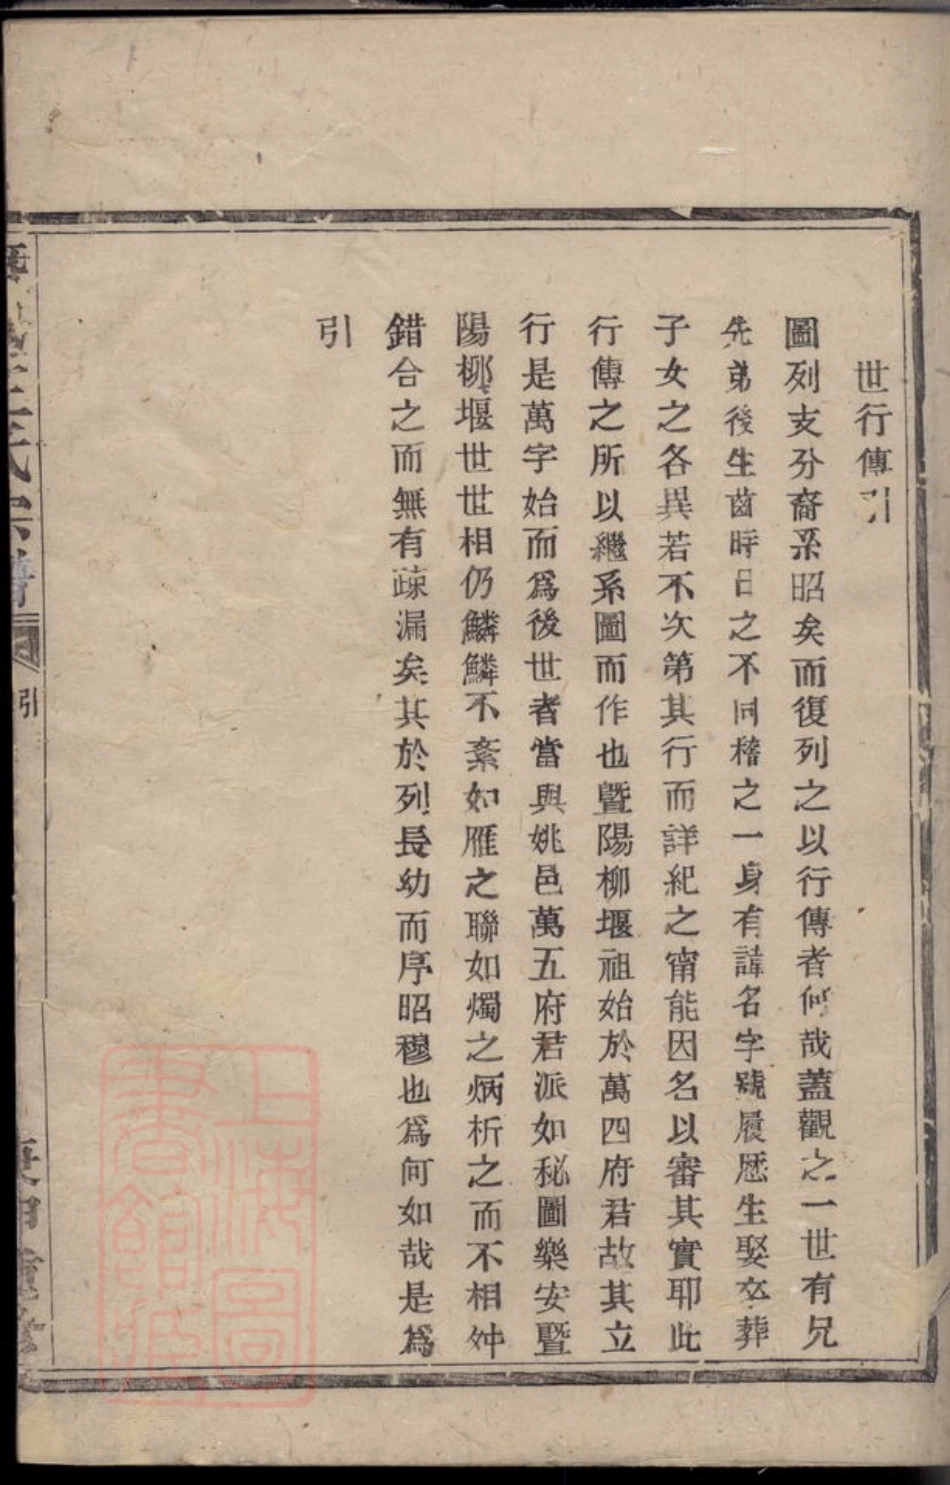 世行傳引
圖列支分裔系昭矣而復列之以行傳者何哉蓋觀之一世有兄
先弟後生齒時日之不同稽之一身有諱名字號履歷生娶卒葬
子女之各異若不次第其行而詳紀之甯能因名以審其實耶此
行傳之所以繼系圖而作也暨陽柳堰祖始於萬四府君故其立
行是萬字始而爲後世者當與姚邑萬五府君派如秘圖樂安暨
陽柳堰世世相仍鱗鱗不紊如雁之聯如燭之炳析之而不相舛
錯合之而無有疎漏矣其於列長幼而序昭穆也爲何如哉是爲
引
王氏宗譜
引
上海圖
書館藏